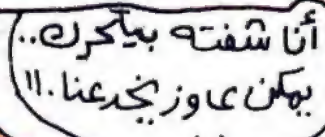 أنا شفته بيتحرك..
يمكن عاوز يخدعنا.!!